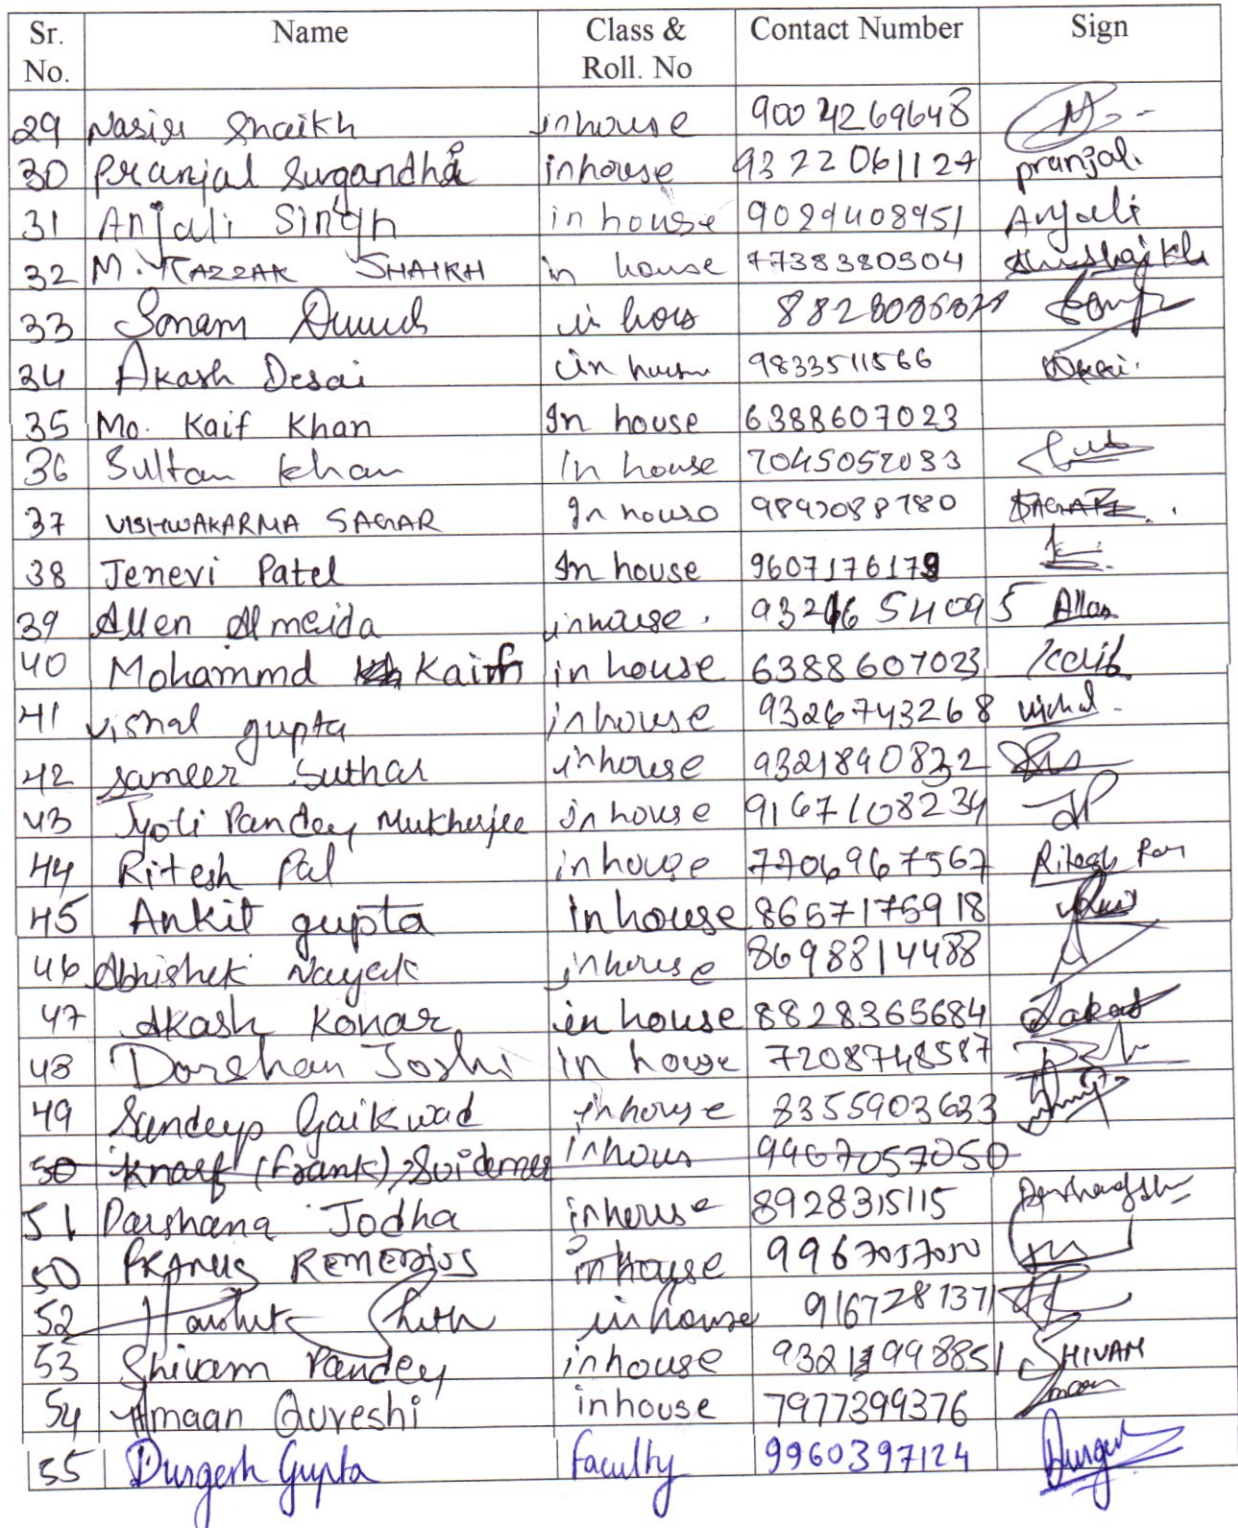 Sr. No. Name Class & Roll. No Contact Number Sign
29 Nasir Shaikh inhouse 9004269648
30 Pranjal Sugandha inhouse 9322061127 pranjal.
31 Anjali Singh in house 9029408951 Anjali
32 M. RAZZAK SHAIKH in house 7738380504
33 Sonam in hous
34 Akash Desai in house 9833511566
35 Mo. Kaif Khan In house 6388607023
36 Sultan khan In house 7045052083
37 VISHWAKARMA SAGAR In house 9892088780 SAGAR
38 Jenevi Patel In house
39 Allen Almeida inhouse. Allen
40 Mohammd Kaif in house 6388607023 Kaif
41 vishal gupta inhouse 9326743268 vishal.
42 sameer Suthar inhouse 9321840832
43 Jyoti Pandey Mukherjee in house 9167108234 JP
44 Ritesh Pal inhouse 7706967567 Ritesh Pal
45 Ankit gupta in house 8657175918
46 Abhishek Nayak inhouse 8698814488
47 Akash Konar in house 8828365684
48 Darshan Joshi in house 7208748587
49 Sandeep Gaikwad inhouse 8355903633
50 Knarf (Frank) inhous 9967057050
51 Darshana Jodha inhouse 8928315115
50 REMEDIOS inhouse 9967057050
52 Sheth inhouse 9167281371
53 Shivam Pandey inhouse SHIVAM
54 Amaan Qureshi inhouse 7977399376 Amaan
55 Durgesh Gupta Faculty 9960397124 Durgesh